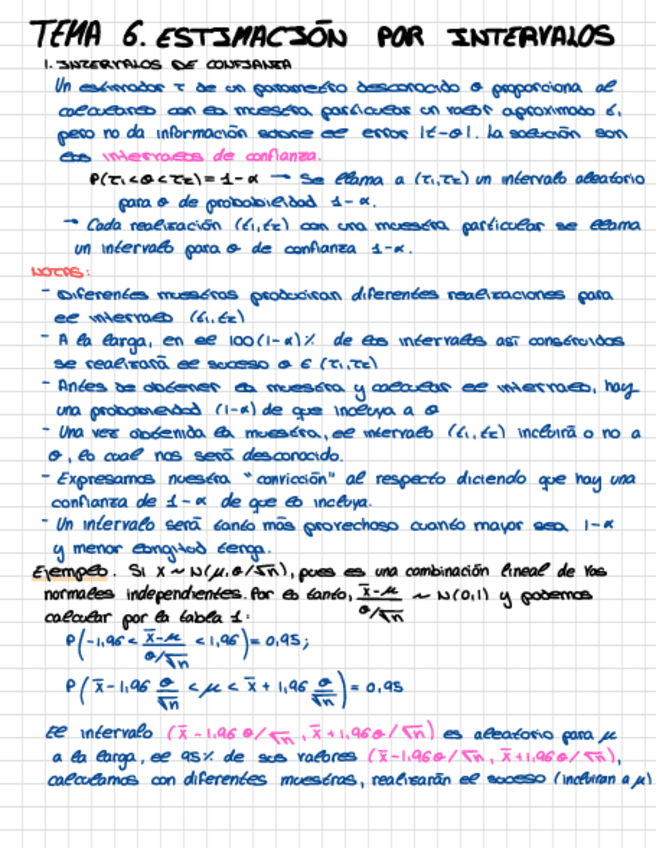 TEMA 6. ESTIMACIÓN POR INTERVALOS
1. INTERVALOS DE CONFIANZA
Un estimador τ de un parametro desconocido θ proporciona al
calcularlo con la muestra particular un valor aproximado t,
pero no da información sobre el error |t-θ|. La solución son
los intervalos de confianza.
P(τ₁<θ<τ₂)=1-α → Se llama a (τ₁,τ₂) un intervalo aleatorio
para θ de probabilidad 1-α.
→ Cada realización (t₁,t₂) con una muestra particular se llama
un intervalo para θ de confianza 1-α.
NOTAS:
- Diferentes muestras produciran diferentes realizaciones para
el intervalo (t₁,t₂)
- A la larga, en el 100(1-α)% de los intervalos así construidos
se realizará el suceso θ ∈ (τ₁,τ₂)
- Antes de obtener la muestra y calcular el intervalo, hay
una probabilidad (1-α) de que incluya a θ
- Una vez obtenida la muestra, el intervalo (t₁,t₂) incluirá o no a
θ, lo cual nos será desconocido.
- Expresamos nuestra "convicción" al respecto diciendo que hay una
confianza de 1-α de que lo incluya.
- Un intervalo será tanto más provechoso cuanto mayor sea 1-α
y menor longitud tenga.
Ejemplo. Si X ~ N(μ,σ/√n), pues es una combinación lineal de vas
normales independientes. Por lo tanto, (x̄-μ)/(σ/√n) ~ N(0,1) y podemos
calcular por la tabla 1:
P(-1,96 < (x̄-μ)/(σ/√n) < 1,96) = 0,95;
P(x̄-1,96 σ/√n < μ < x̄+1,96 σ/√n) = 0,95
El intervalo (x̄-1.96σ/√n, x̄+1.96σ/√n) es aleatorio para μ
a la larga, el 95% de sus valores (x̄-1.96σ/√n, x̄+1.96σ/√n),
calculamos con diferentes muestras, realizarán el suceso (incluiran a μ)